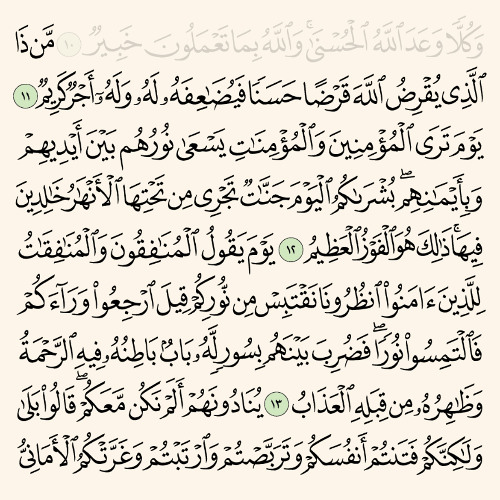 وَكُلًّا وَعَدَ ٱللَّهُ ٱلْحُسْنَىٰ ۚ وَٱللَّهُ بِمَا تَعْمَلُونَ خَبِيرٌ ١٠ مَّن ذَا
ٱلَّذِى يُقْرِضُ ٱللَّهَ قَرْضًا حَسَنًا فَيُضَٰعِفَهُۥ لَهُۥ وَلَهُۥٓ أَجْرٌ كَرِيمٌ ١١
يَوْمَ تَرَى ٱلْمُؤْمِنِينَ وَٱلْمُؤْمِنَٰتِ يَسْعَىٰ نُورُهُم بَيْنَ أَيْدِيهِمْ
وَبِأَيْمَٰنِهِم ۖ بُشْرَىٰكُمُ ٱلْيَوْمَ جَنَّٰتٌ تَجْرِى مِن تَحْتِهَا ٱلْأَنْهَٰرُ خَٰلِدِينَ
فِيهَا ۚ ذَٰلِكَ هُوَ ٱلْفَوْزُ ٱلْعَظِيمُ ١٢ يَوْمَ يَقُولُ ٱلْمُنَٰفِقُونَ وَٱلْمُنَٰفِقَٰتُ
لِلَّذِينَ ءَامَنُوا۟ ٱنظُرُونَا نَقْتَبِسْ مِن نُّورِكُمْ قِيلَ ٱرْجِعُوا۟ وَرَآءَكُمْ
فَٱلْتَمِسُوا۟ نُورًا ۖ فَضُرِبَ بَيْنَهُم بِسُورٍ لَّهُۥ بَابٌۢ بَاطِنُهُۥ فِيهِ ٱلرَّحْمَةُ
وَظَٰهِرُهُۥ مِن قِبَلِهِ ٱلْعَذَابُ ١٣ يُنَادُونَهُمْ أَلَمْ نَكُن مَّعَكُمْ ۖ قَالُوا۟ بَلَىٰ
وَلَٰكِنَّكُمْ فَتَنتُمْ أَنفُسَكُمْ وَتَرَبَّصْتُمْ وَٱرْتَبْتُمْ وَغَرَّتْكُمُ ٱلْأَمَانِىُّ